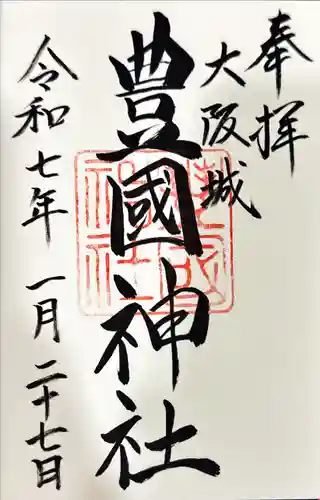 奉拝
大阪城
豊國神社
令和七年 一月二十七日